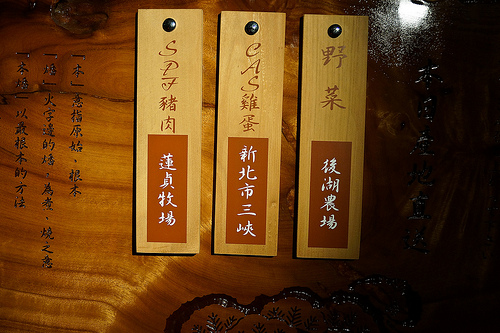 野菜
後湖農場
CAS雞蛋
新北市三峽
SPF豬肉
蓮貞牧場
「本」意指原始、根本
「燔」火字邊的燔，為煮、燒之意
「本燔」以最根本的方法